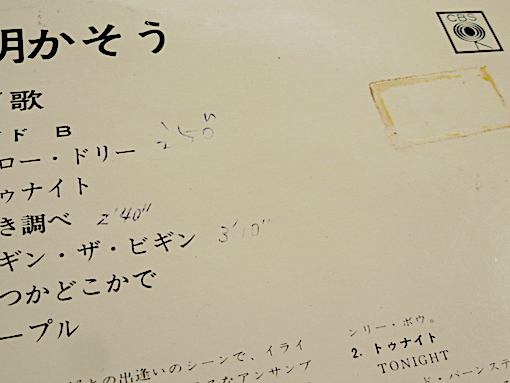 明かそう
CBS
歌
ド B
ロー・ドリー 2'50"
ゥナイト
き調べ 2'40"
ギン・ザ・ビギン 3'10"
つかどこかで
ープル
との出逢いのシーンで、イライ
なアンサンブ
ンリー・ボウ。
2. トゥナイト
TONIGHT
ド・バーンステ